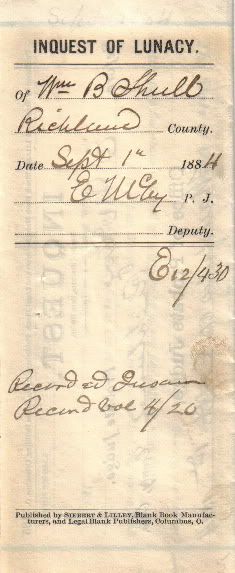 INQUEST OF LUNACY.
Of Wm B Shull
Richland County.
Date Sept 1st 1884
E McCoy P. J.
Deputy.
E 12/430
Recorded Insane
Record Vol 4/20
Published by SIEBERT & LILLEY, Blank Book Manufac-
turers, and Legal Blank Publishers, Columbus, O.